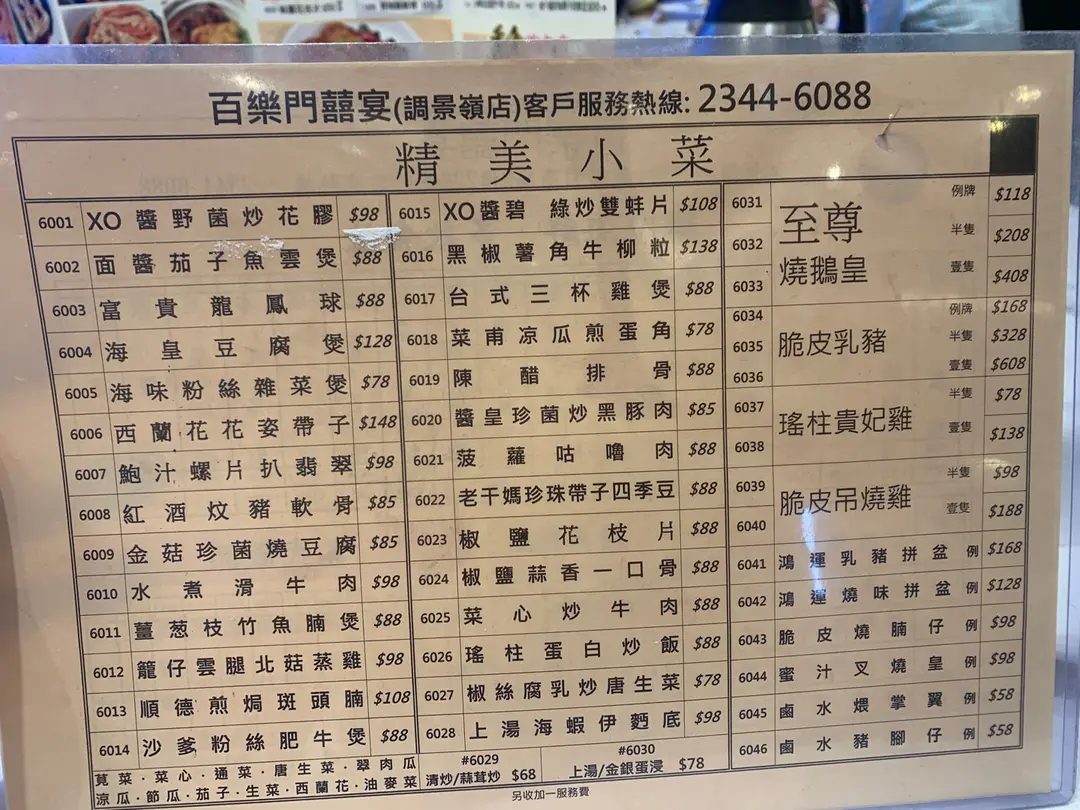 百樂門囍宴(調景嶺店)客戶服務熱線: 2344-6088
精美小菜
6001 XO醬野菌炒花膠 $98
6002 面醬茄子魚雲煲 $88
6003 富貴龍鳳球 $88
6004 海皇豆腐煲 $128
6005 海味粉絲雜菜煲 $78
6006 西蘭花花姿帶子 $148
6007 鮑汁螺片扒翡翠 $98
6008 紅酒炆豬軟骨 $85
6009 金菇珍菌燒豆腐 $85
6010 水煮滑牛肉 $98
6011 薑葱枝竹魚腩煲 $88
6012 籠仔雲腿北菇蒸雞 $98
6013 順德煎焗斑頭腩 $108
6014 沙爹粉絲肥牛煲 $88
莧菜·菜心·通菜·唐生菜·翠肉瓜
涼瓜·節瓜·茄子·生菜·西蘭花·油麥菜
6015 XO醬碧 綠炒雙蚌片 $108
6016 黑椒薯角牛柳粒 $138
6017 台式三杯雞煲 $88
6018 菜甫凉瓜煎蛋角 $78
6019 陳醋排骨 $88
6020 醬皇珍菌炒黑豚肉 $85
6021 菠蘿咕嚕肉 $88
6022 老干媽珍珠帶子四季豆 $88
6023 椒鹽花枝片 $88
6024 椒鹽蒜香一口骨 $88
6025 菜心炒牛肉 $88
6026 瑤柱蛋白炒飯 $88
6027 椒絲腐乳炒唐生菜 $78
6028 上湯海蝦伊麪底 $98
#6029
清炒/蒜茸炒 $68
#6030
上湯/金銀蛋浸 $78
6031 至尊 例牌 $118
6032 燒鵝皇 半隻 $208
6033 壹隻 $408
6034 例牌 $168
6035 脆皮乳豬 半隻 $328
6036 壹隻 $608
6037 瑤柱貴妃雞 半隻 $78
6038 壹隻 $138
6039 脆皮吊燒雞 半隻 $98
6040 壹隻 $188
6041 鴻運乳豬拼盆 例 $168
6042 鴻運燒味拼盆 例 $128
6043 脆皮燒腩仔 例 $98
6044 蜜汁叉燒皇 例 $98
6045 鹵水煨掌翼 例 $58
6046 鹵水豬腳仔 例 $58
另收加一服務費